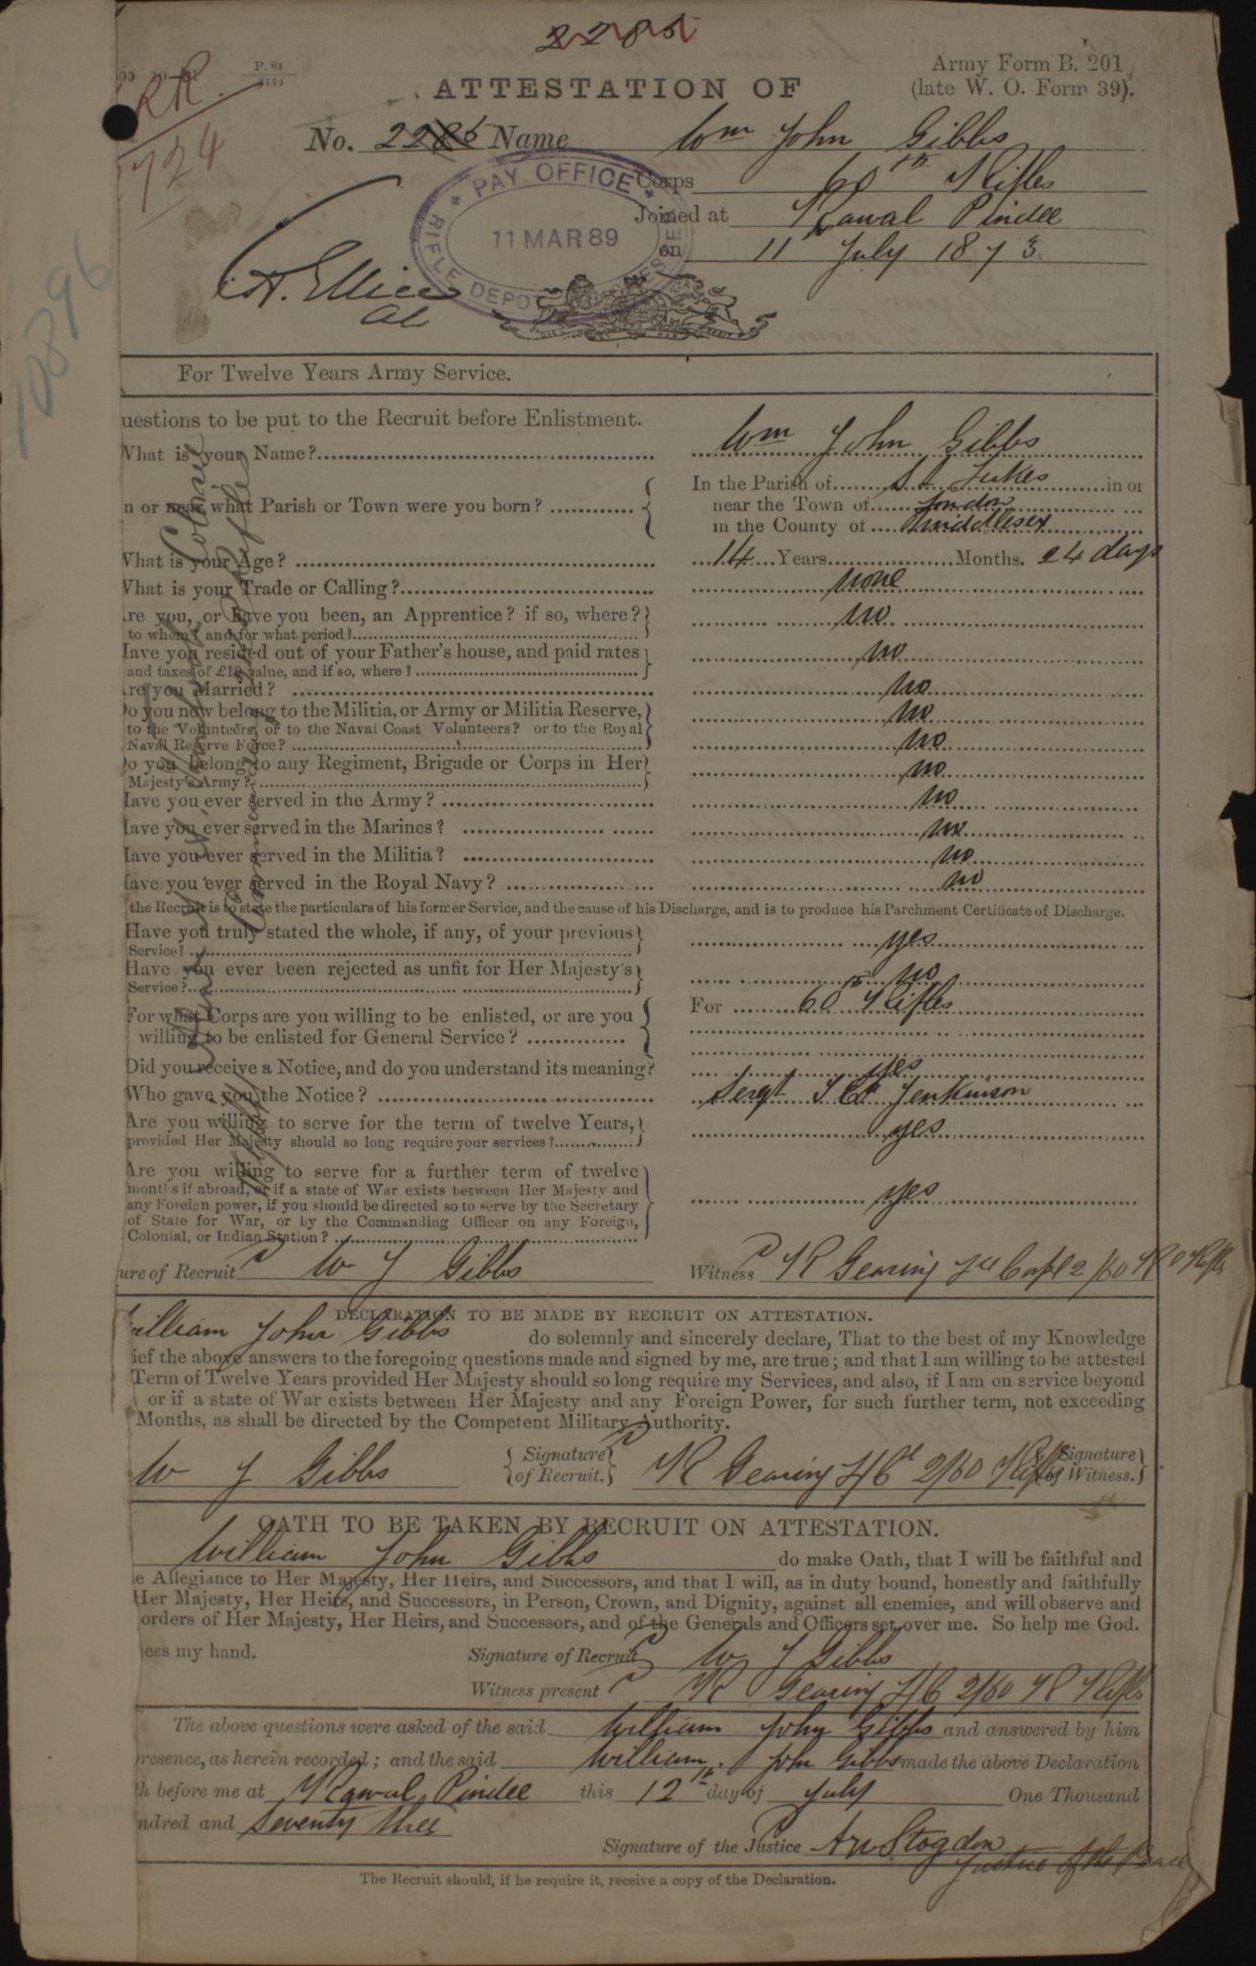 2285
P. 84
Army Form B. 201
(late W. O. Form 39).
RR.
724
ATTESTATION OF
No. 2285 Name Wm John Gibbs
Corps 60th Rifles
Joined at Rawal Pindee
on 11 July 1873
PAY OFFICE
11 MAR 89
RIFLE DEPOT
10896
For Twelve Years Army Service.
uestions to be put to the Recruit before Enlistment.
What is your Name? Wm John Gibbs
n or near what Parish or Town were you born? In the Parish of St Lukes in or
near the Town of London
in the County of Middlesex
What is your Age? 14 Years Months. 24 days
What is your Trade or Calling? none
re you, or have you been, an Apprentice? if so, where? no
to whom? and for what period?
Have you resided out of your Father's house, and paid rates no
and taxes of £10 value, and if so, where?
re you Married? no
Do you now belong to the Militia, or Army or Militia Reserve, no
to the Volunteers, or to the Naval Coast Volunteers? or to the Royal no
Naval Reserve Force?
Do you belong to any Regiment, Brigade or Corps in Her no
Majesty's Army?
Have you ever served in the Army? no
Have you ever served in the Marines? no
Have you ever served in the Militia? no
Have you ever served in the Royal Navy? no
the Recruit is to state the particulars of his former Service, and the cause of his Discharge, and is to produce his Parchment Certificate of Discharge.
Have you truly stated the whole, if any, of your previous yes
Service?
Have you ever been rejected as unfit for Her Majesty's no
Service?
For what Corps are you willing to be enlisted, or are you For 60th Rifles
willing to be enlisted for General Service?
Did you receive a Notice, and do you understand its meaning? yes
Who gave you the Notice? Sergt Jenkinson
Are you willing to serve for the term of twelve Years, yes
provided Her Majesty should so long require your services?
Are you willing to serve for a further term of twelve
months if abroad, or if a state of War exists between Her Majesty and yes
any Foreign power, if you should be directed so to serve by the Secretary
of State for War, or by the Commanding Officer on any Foreign,
Colonial, or Indian Station?
ure of Recruit W J Gibbs Witness R Gearing 2/60 R Rifles
Colonel
DECLARATION TO BE MADE BY RECRUIT ON ATTESTATION.
illiam John Gibbs do solemnly and sincerely declare, That to the best of my Knowledge
ief the above answers to the foregoing questions made and signed by me, are true; and that I am willing to be attested
Term of Twelve Years provided Her Majesty should so long require my Services, and also, if I am on service beyond
or if a state of War exists between Her Majesty and any Foreign Power, for such further term, not exceeding
Months, as shall be directed by the Competent Military Authority.
W J Gibbs Signature of Recruit. R Gearing 2/60 Rifles Signature of Witness.
OATH TO BE TAKEN BY RECRUIT ON ATTESTATION.
William John Gibbs do make Oath, that I will be faithful and
e Allegiance to Her Majesty, Her Heirs, and Successors, and that I will, as in duty bound, honestly and faithfully
Her Majesty, Her Heirs, and Successors, in Person, Crown, and Dignity, against all enemies, and will observe and
orders of Her Majesty, Her Heirs, and Successors, and of the Generals and Officers set over me. So help me God.
ess my hand. Signature of Recruit W J Gibbs
Witness present R Gearing 2/60 R Rifles
The above questions were asked of the said William John Gibbs and answered by him
resence, as herein recorded; and the said William John Gibbs made the above Declaration
h before me at Rawul Pindee this 12th day of July One Thousand
ndred and Seventy three
Signature of the Justice A W Stogdon
Justice of the Peace
The Recruit should, if he require it, receive a copy of the Declaration.